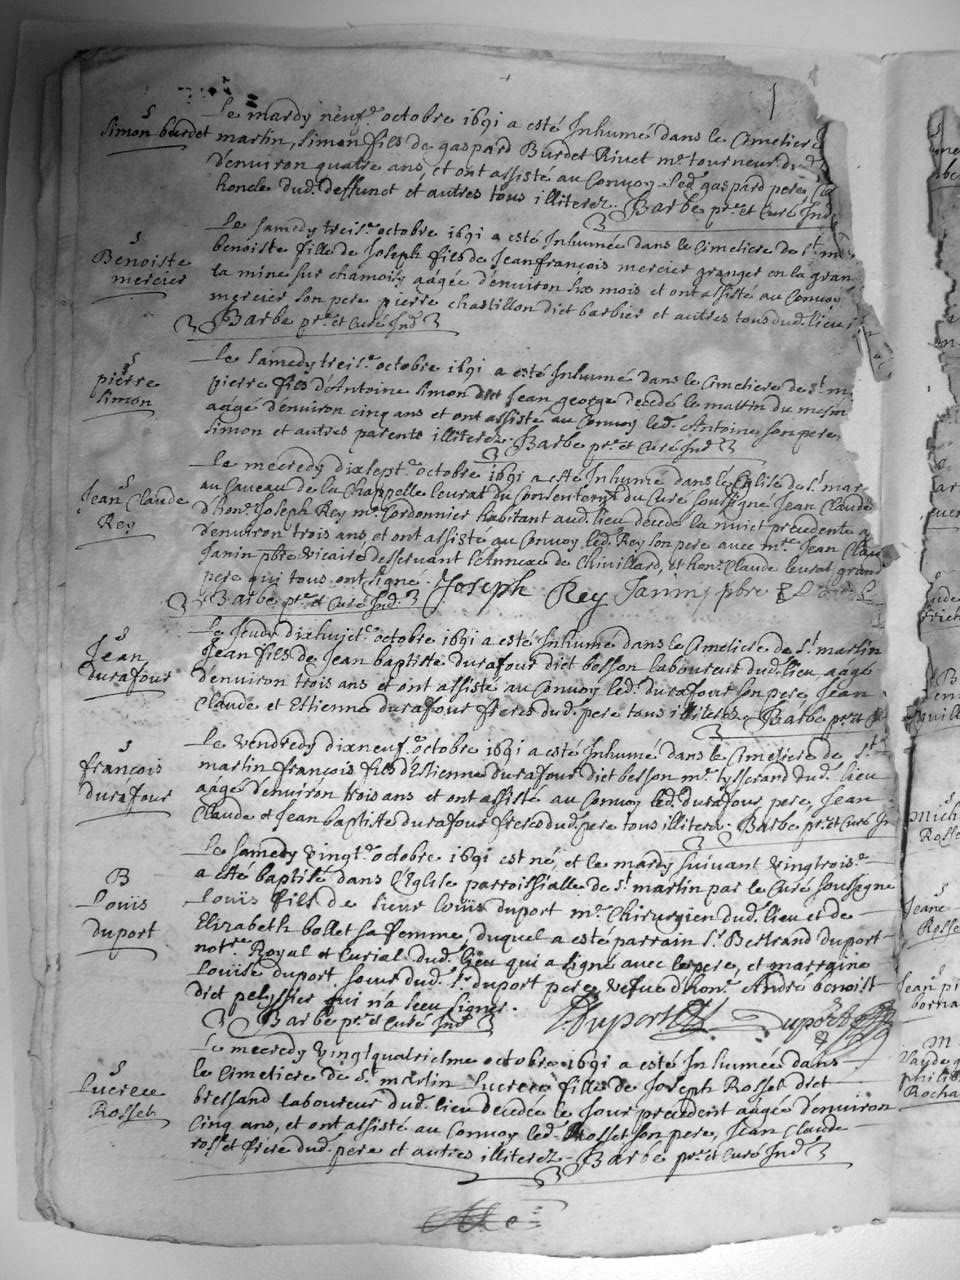 S
Simon burdet
Le mardy neuf.e octobre 1691 a esté Inhumé dans le Cimetiere
martin, Simon fils de gaspard Burdet Rivet m.e tourneur du d
d'environ quatre ans, et ont assisté au Convoy led. gaspard pere
honcle dud. deffunct et autres tous illiterez. Barbe pr.e et Curé Ind
S
Benoiste
mercier
Le samedy treis.e octobre 1691 a esté Inhumée dans le Cimetiere de s.t m
benoiste fille de Joseph fils de Jeanfrançois mercier granger en la gran
la mine sur chamoisy aagée d'environ six mois et ont assisté au Convoy
mercier son pere pierre chastillon dict barbier et autres tous dud. lieu
Barbe pr.e et Curé Ind
S
pierre
Simon
Le samedy treis.e octobre 1691 a esté Inhumé dans le Cimetiere de s.t m
pierre fils d'Antoine Simon dict Jean george decedé le mattin du mesm
aagé d'environ cinq ans et ont assisté au Convoy led. Antoine son pere
Simon et autres parents illiterez. Barbe pr.e et Curé Ind
S
Jean Claude
Rey
Le mecredy dixsept.e octobre 1691 a esté Inhumé dans l'Eglise de s.t mar
au Caveau de la Chappelle leurat du Consentem.t du Curé soussigne Jean Claude
d'hon. Joseph Rey m.e Cordonnier habitant aud. lieu decedé la nuict precedente a
d'environ trois ans et ont assisté au Convoy led. Rey son pere avec m.re Jean Clau
Janin pbre vicaire desservant l'Annexe de Chivillard, et hon. Claude leurat grand
pere qui tous ont signe. Joseph Rey Janin pbre
Barbe pr.e et Curé Ind.
S
Jean
durafour
Le Jeudy dixhuict.e octobre 1691 a esté Inhumé dans le Cimetiere de s.t martin
Jean fils de Jean baptiste durafour dict besson laboureur dud. lieu aagé
d'environ trois ans et ont assisté au Convoy led. durafour son pere Jean
Claude et Estienne durafour freres dud. pere tous illiterez. Barbe pr.e et
S
françois
durafour
Le vendredy dixneuf.e octobre 1691 a esté Inhumé dans le Cimetiere de s.t
martin françois fils d'Estienne durafour dict besson m.e tysserand dud. lieu
aagé d'environ trois ans et ont assisté au Convoy led. durafour pere, Jean
Claude et Jean baptiste durafour freres dud. pere tous illiterez. Barbe pr.e et Curé In
B
Loüis
duport
Le samedy vingt.e octobre 1691 est né et le mardy suivant vingtrois.e
a esté baptisé dans l'Eglise parroissialle de s.t martin par le Curé soussigne
Loüis fils de sieur Loüis duport m.e Chirurgien dud. lieu et de
Elizabeth bollet sa femme, duquel a esté parrain s.r Bertrand duport
not.re Royal et Curial dud. lieu qui a signé avec le pere, et marraine
Loüise duport soeur dud. s.r duport pere vefue d'hon. André benoist
dict pelyssier qui n'a sceu signer.
Barbe pr.e et Curé Ind Duport Duport
S
Lucrece
Rosset
Le mecredy vingtquatriesme octobre 1691 a esté Inhumée dans
le Cimetiere de s.t martin Lucrece fille de Joseph Rosset dict
bressand laboureur dud. lieu decedée le Jour precedent aagée d'environ
cinq ans, et ont assisté au Convoy led. Rosset son pere, Jean Claude
rosset frere dud. pere et autres illiterez. Barbe pr.e et Curé Ind
Mich
Rosse
Jeane
Rosse
Jean pi
borna
Rocha